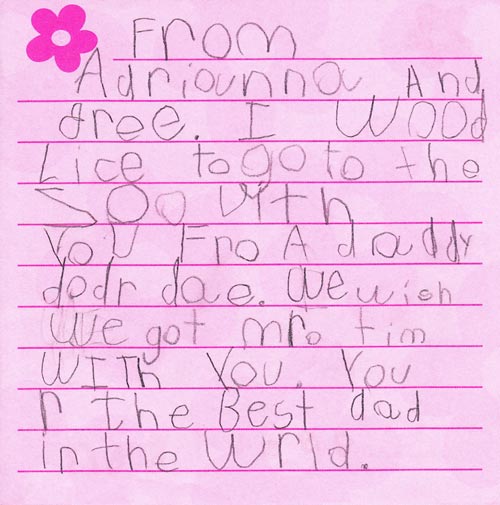 From
Adrianna And
dree. I Wood
Lice to go to the
Zoo With
YoU Fro A daddy
dodr dae. We wish
We got mr. tim
WITh You. You
r the Best dad
in the Wrld.